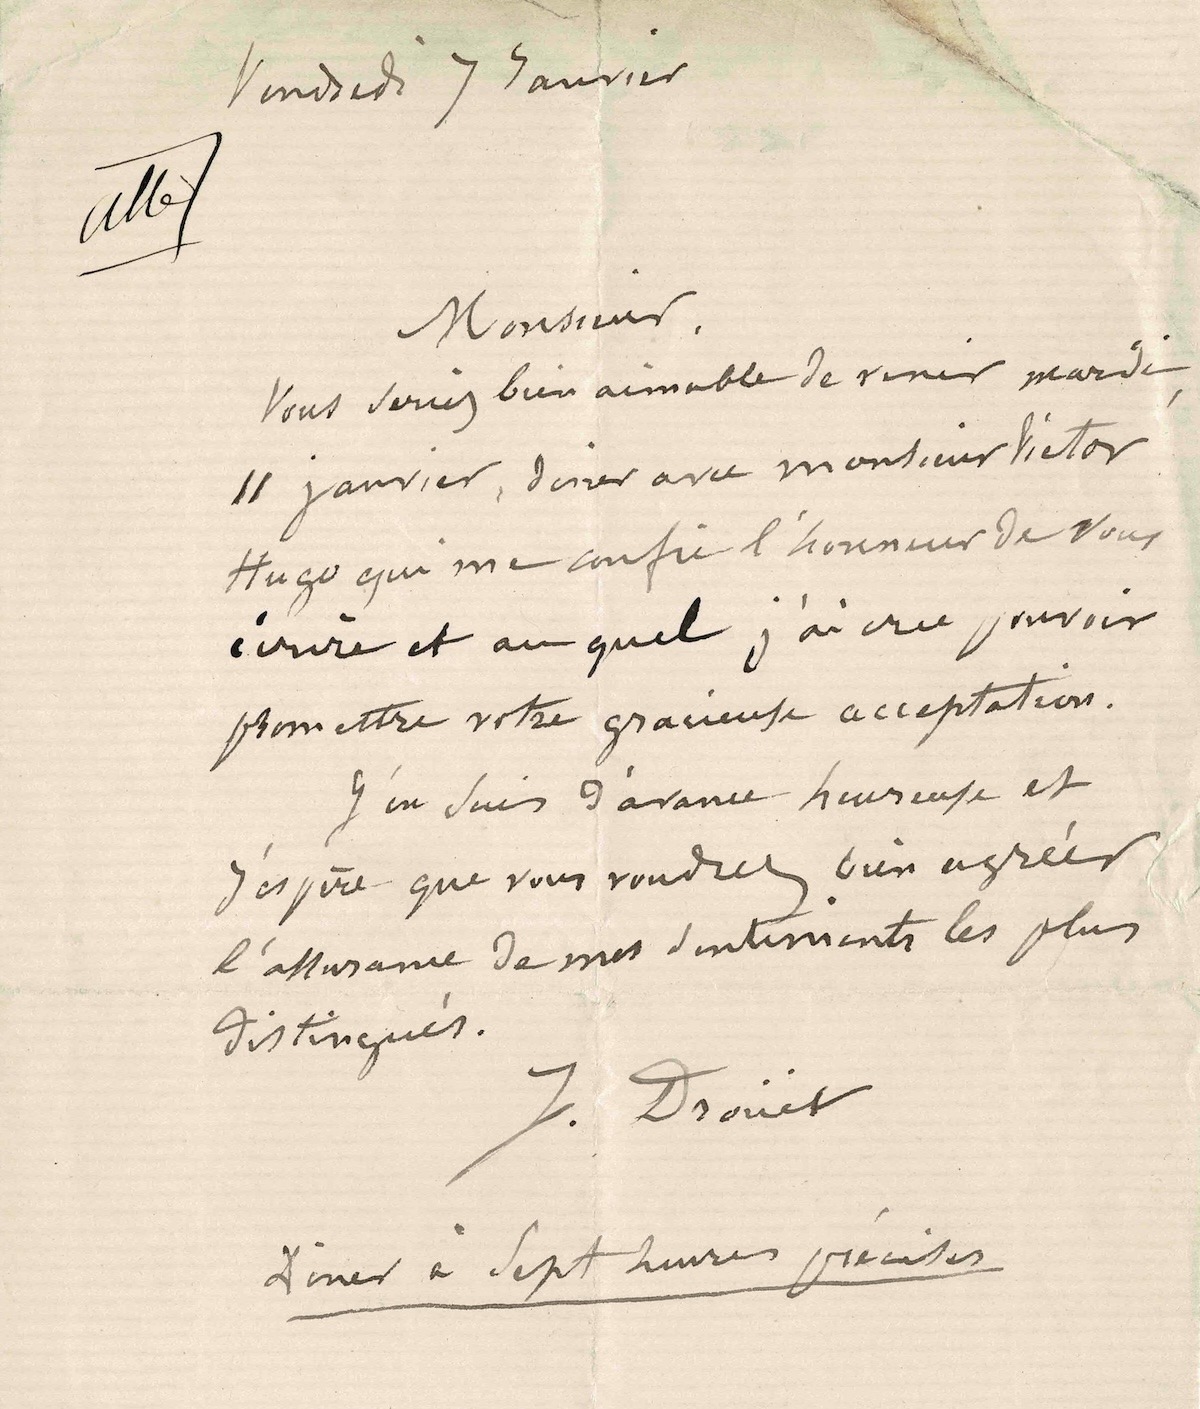 Vendredi 7 Janvier
allé
Monsieur,
Vous seriez bien aimable de venir mardi,
11 janvier, diner avec monsieur Victor
Hugo qui me confie l'honneur de vous
écrire et auquel j'ai cru pouvoir
promettre votre gracieuse acceptation.
J'en suis d'avance heureuse et
j'espère que vous voudrez bien agréer
l'assurance de mes sentiments les plus
distingués.
J. Droüet
Diner à Sept heures précises